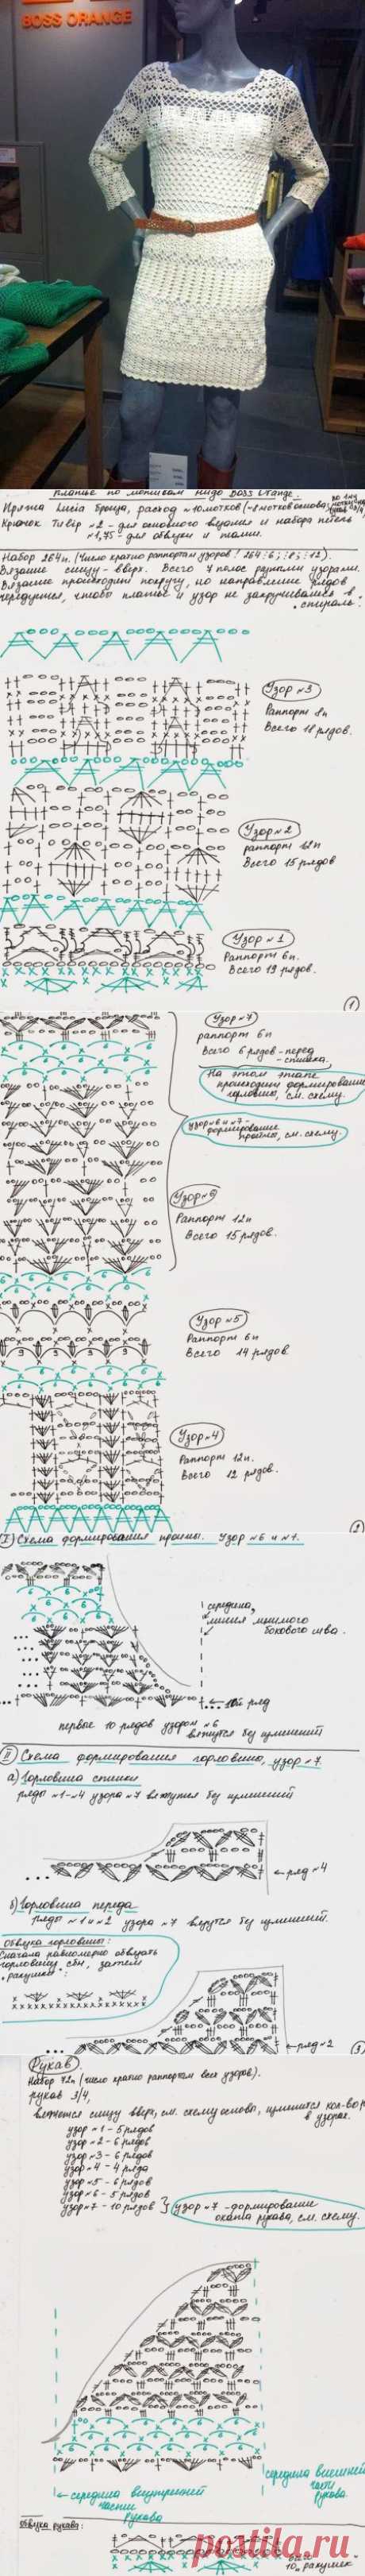 BOSS ORANGE
Платье по мотивам Hugo BOSS Orange.
Крючок
Набор 264п. (число кратно раппортам узоров: 264:6; :8; :12).
Вязание снизу-вверх. Всего 7 полос разными узорами.
Вязание происходит по кругу, но направление рядов
чередуется, чтобы платье и узор не закручивались в
"спираль".
Узор №3
Раппорт 8п
Всего 18 рядов.
Узор №2
раппорт 12п
Всего 15 рядов
Узор №1
Раппорт 6п.
Всего 19 рядов.
1
Узор №7
раппорт 6п
Всего 6 рядов - перед
- спинка.
На этом этапе
происходит формирование
горловины, см. схему.
узор №6 и №7 -
формирование
проймы, см. схему.
Раппорт 12п
Всего 15 рядов.
Узор №5
Раппорт 6п
Всего 14 рядов.
Узор №4
Раппорт 12п.
Всего 12 рядов.
2
I) Схема формирования проймы.
середина,
линия мнимого
бокового шва.
10й ряд
первые 10 рядов узором №6
вяжутся без изменений
II Схема формирования горловины, узор №7
а) Горловина спинки
ряды №1-№4 узора №7 вяжутся без изменений
ряд №4
б) Горловина переда
ряды №1 и №2 узора №7 вяжутся без изменений.
Обвязка горловины:
Сначала равномерно обвязать
горловину сбн, затем
"ракушки":
ряд №2
3
Рукав
Набор 72п (число кратно раппортам всех узоров).
рукав 3/4,
вяжется снизу вверх, см. схему основы, изменится кол-во р.
в узорах.
узор №1 - 5 рядов
узор №2 - 6 рядов
узор №3 - 6 рядов
узор №4 - 4 ряда
узор №5 - 6 рядов
узор №6 - 5 рядов
узор №7 - 10 рядов
узор №7 - формирование
оката рукава, см. схему.
середина внутренней
части
рукава
середина внешней
части
рукава.
Обвязка рукава:
10 ракушек
postila.ru